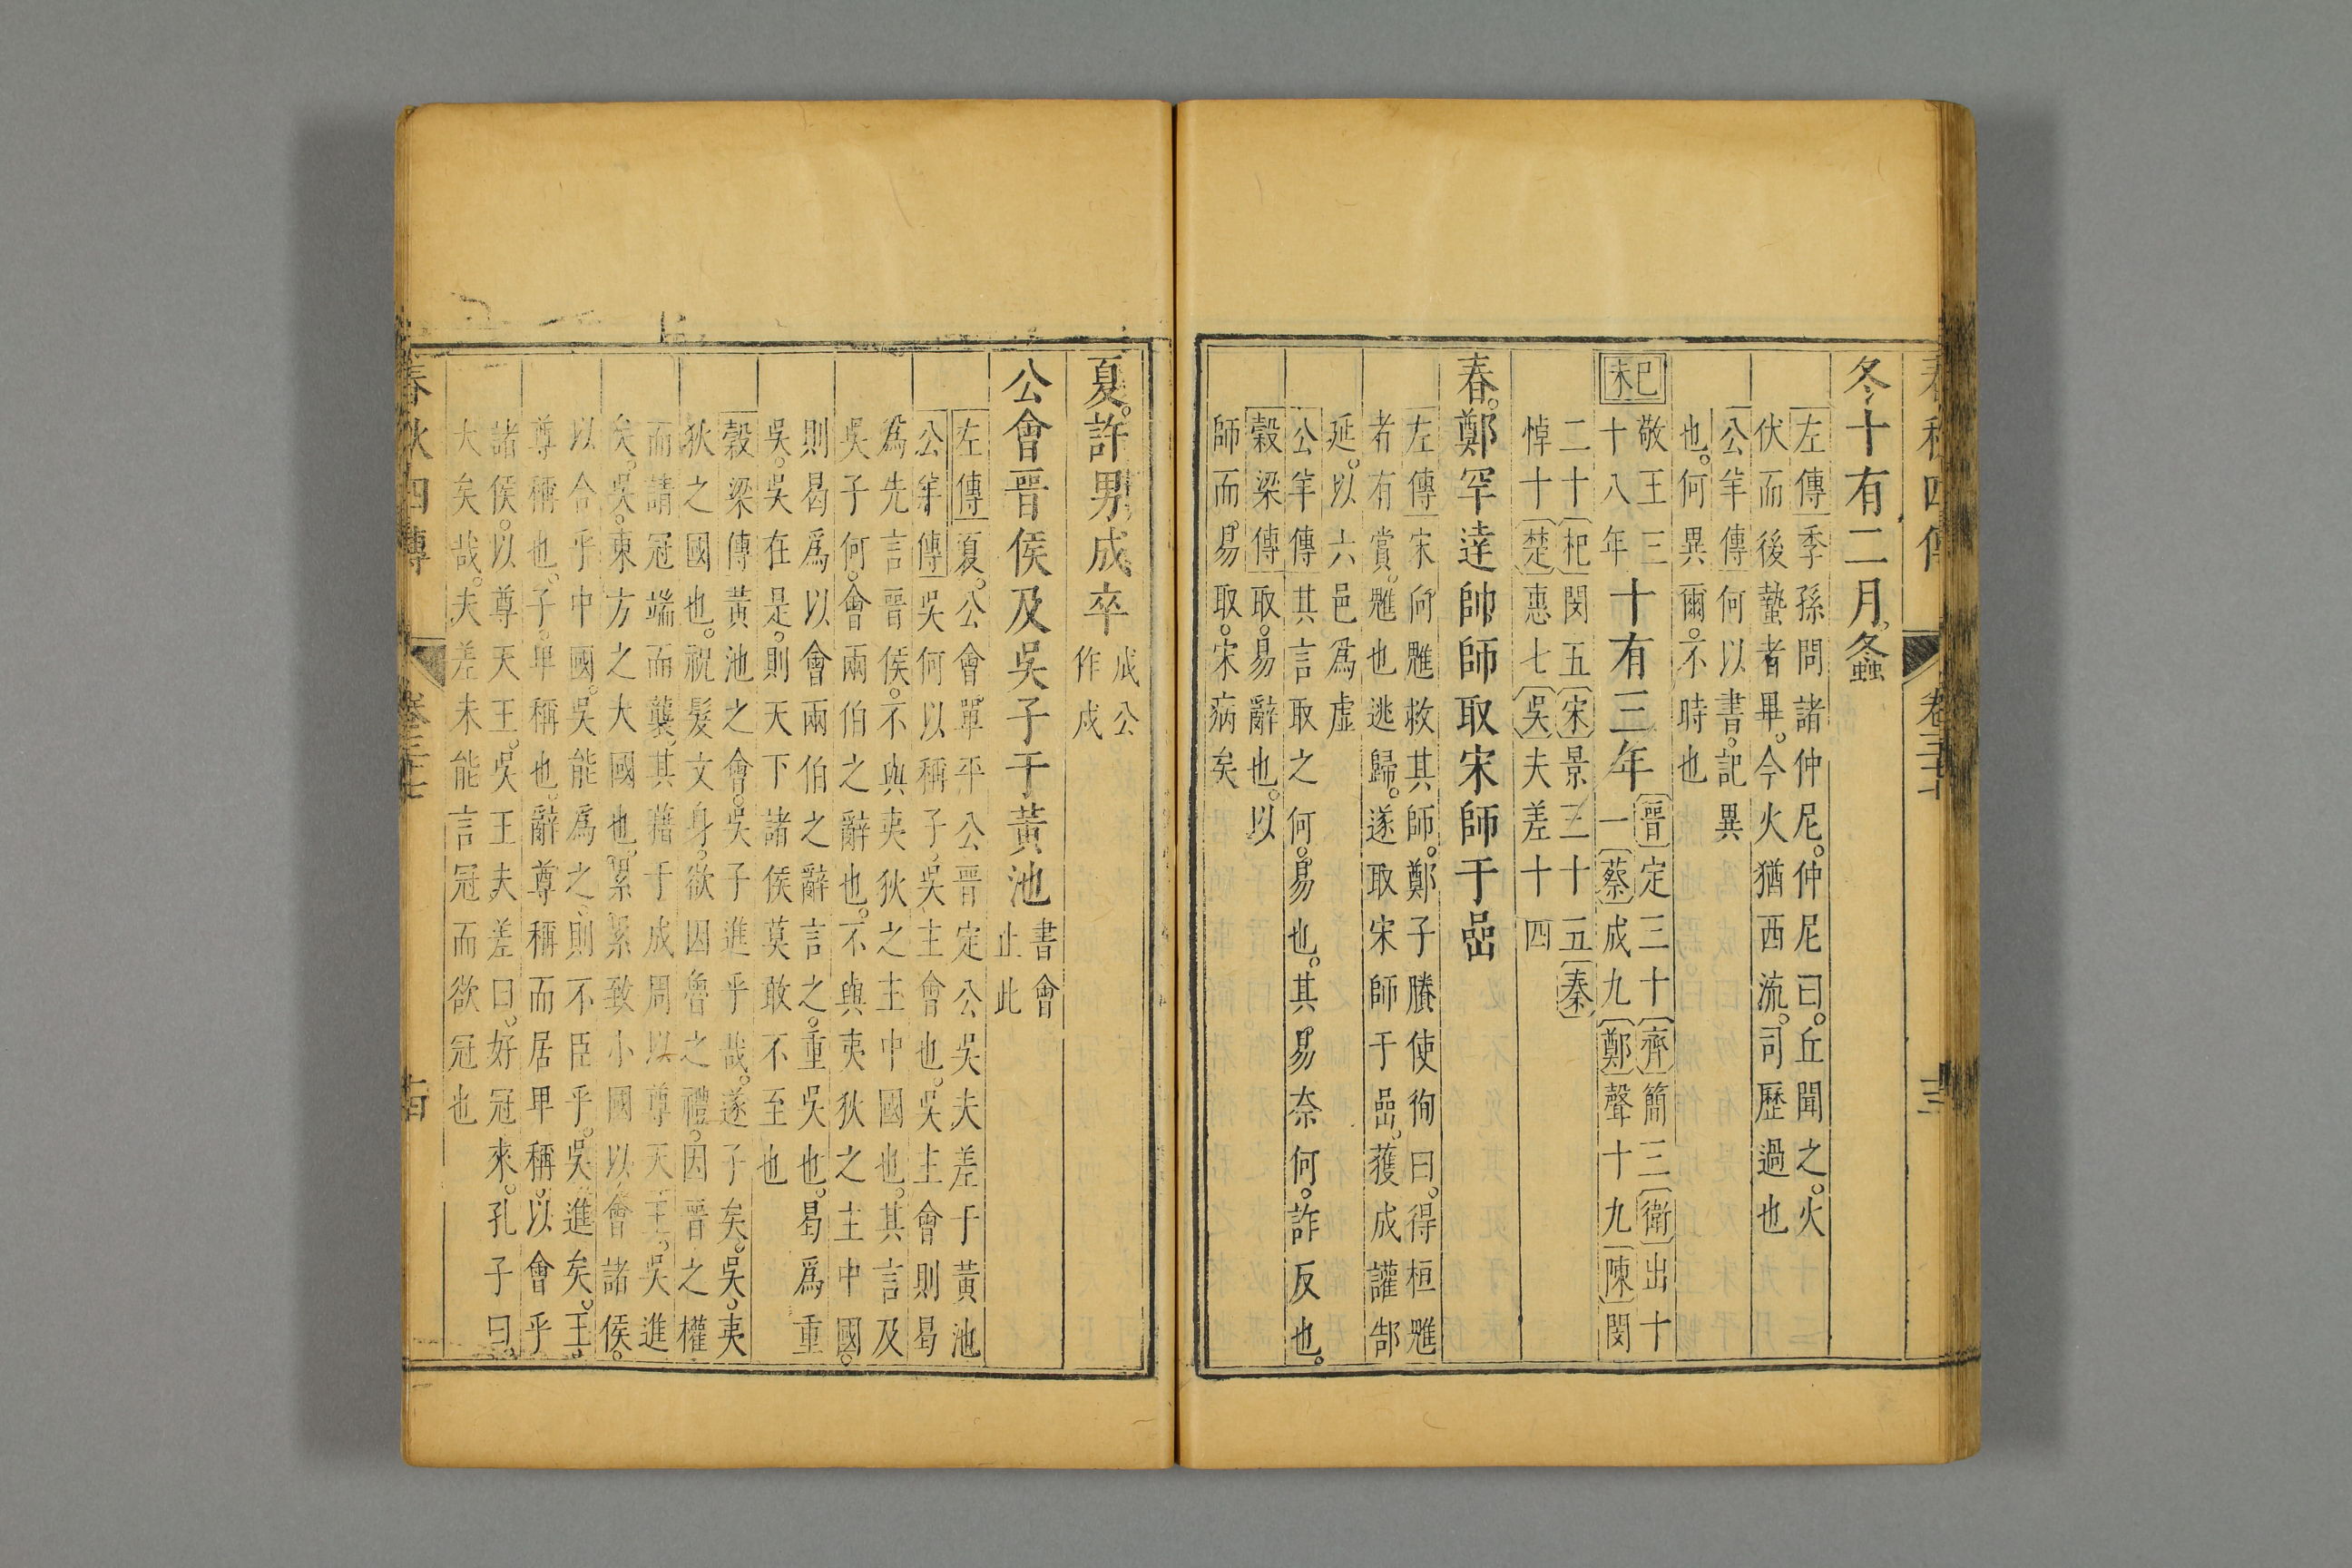 春秋四傳 卷三十七 十三
冬十有二月。螽
左傳季孫問諸仲尼。仲尼曰。丘聞之。火
伏而後蟄者畢。今火猶西流。司歷過也
公羊傳何以書。記異
也。何異爾。不時也
己未
敬王三
十八年
十有三年
晉定三十齊簡三衛出十
一蔡成九鄭聲十九陳閔
二十杞閔五宋景三十五秦
悼十楚惠七吳夫差十四
春。鄭罕達帥師取宋師于嵒
左傳宋向魋救其師。鄭子賸使徇曰。得桓魋
者有賞。魋也逃歸。遂取宋師于嵒。獲成讙郜
延。以六邑爲虛
公羊傳其言取之何。易也。其易奈何。詐反也。
穀梁傳取。易辭也。以
師而易取。宋病矣
夏。許男成卒
成公
作戌
公會晉侯及吳子于黃池
書會
止此
左傳夏。公會單平公晉定公吳夫差于黃池
公羊傳吳何以稱子。吳主會也。吳主會則曷
爲先言晉侯。不與夷狄之主中國也。其言及
吳子何。會兩伯之辭也。不與夷狄之主中國。
則曷爲以會兩伯之辭言之。重吳也。曷爲重
吳。吳在是。則天下諸侯莫敢不至也
穀梁傳黃池之會。吳子進乎哉。遂子矣。吳。夷
狄之國也。祝髮文身。欲因魯之禮。因晉之權
而請冠端而襲。其藉于成周以尊天王。吳進
矣。吳。東方之大國也。累累致小國以會諸侯。
以合乎中國。吳能爲之。則不臣乎。吳進矣。王。
尊稱也。子。卑稱也。辭尊稱而居卑稱。以會乎
諸侯。以尊天王。吳王夫差曰。好冠來。孔子曰。
大矣哉。夫差未能言冠而欲冠也
春秋四傳 卷三十七 十四